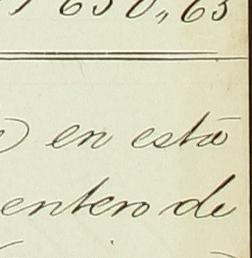 650,,63
) en esta
entero de